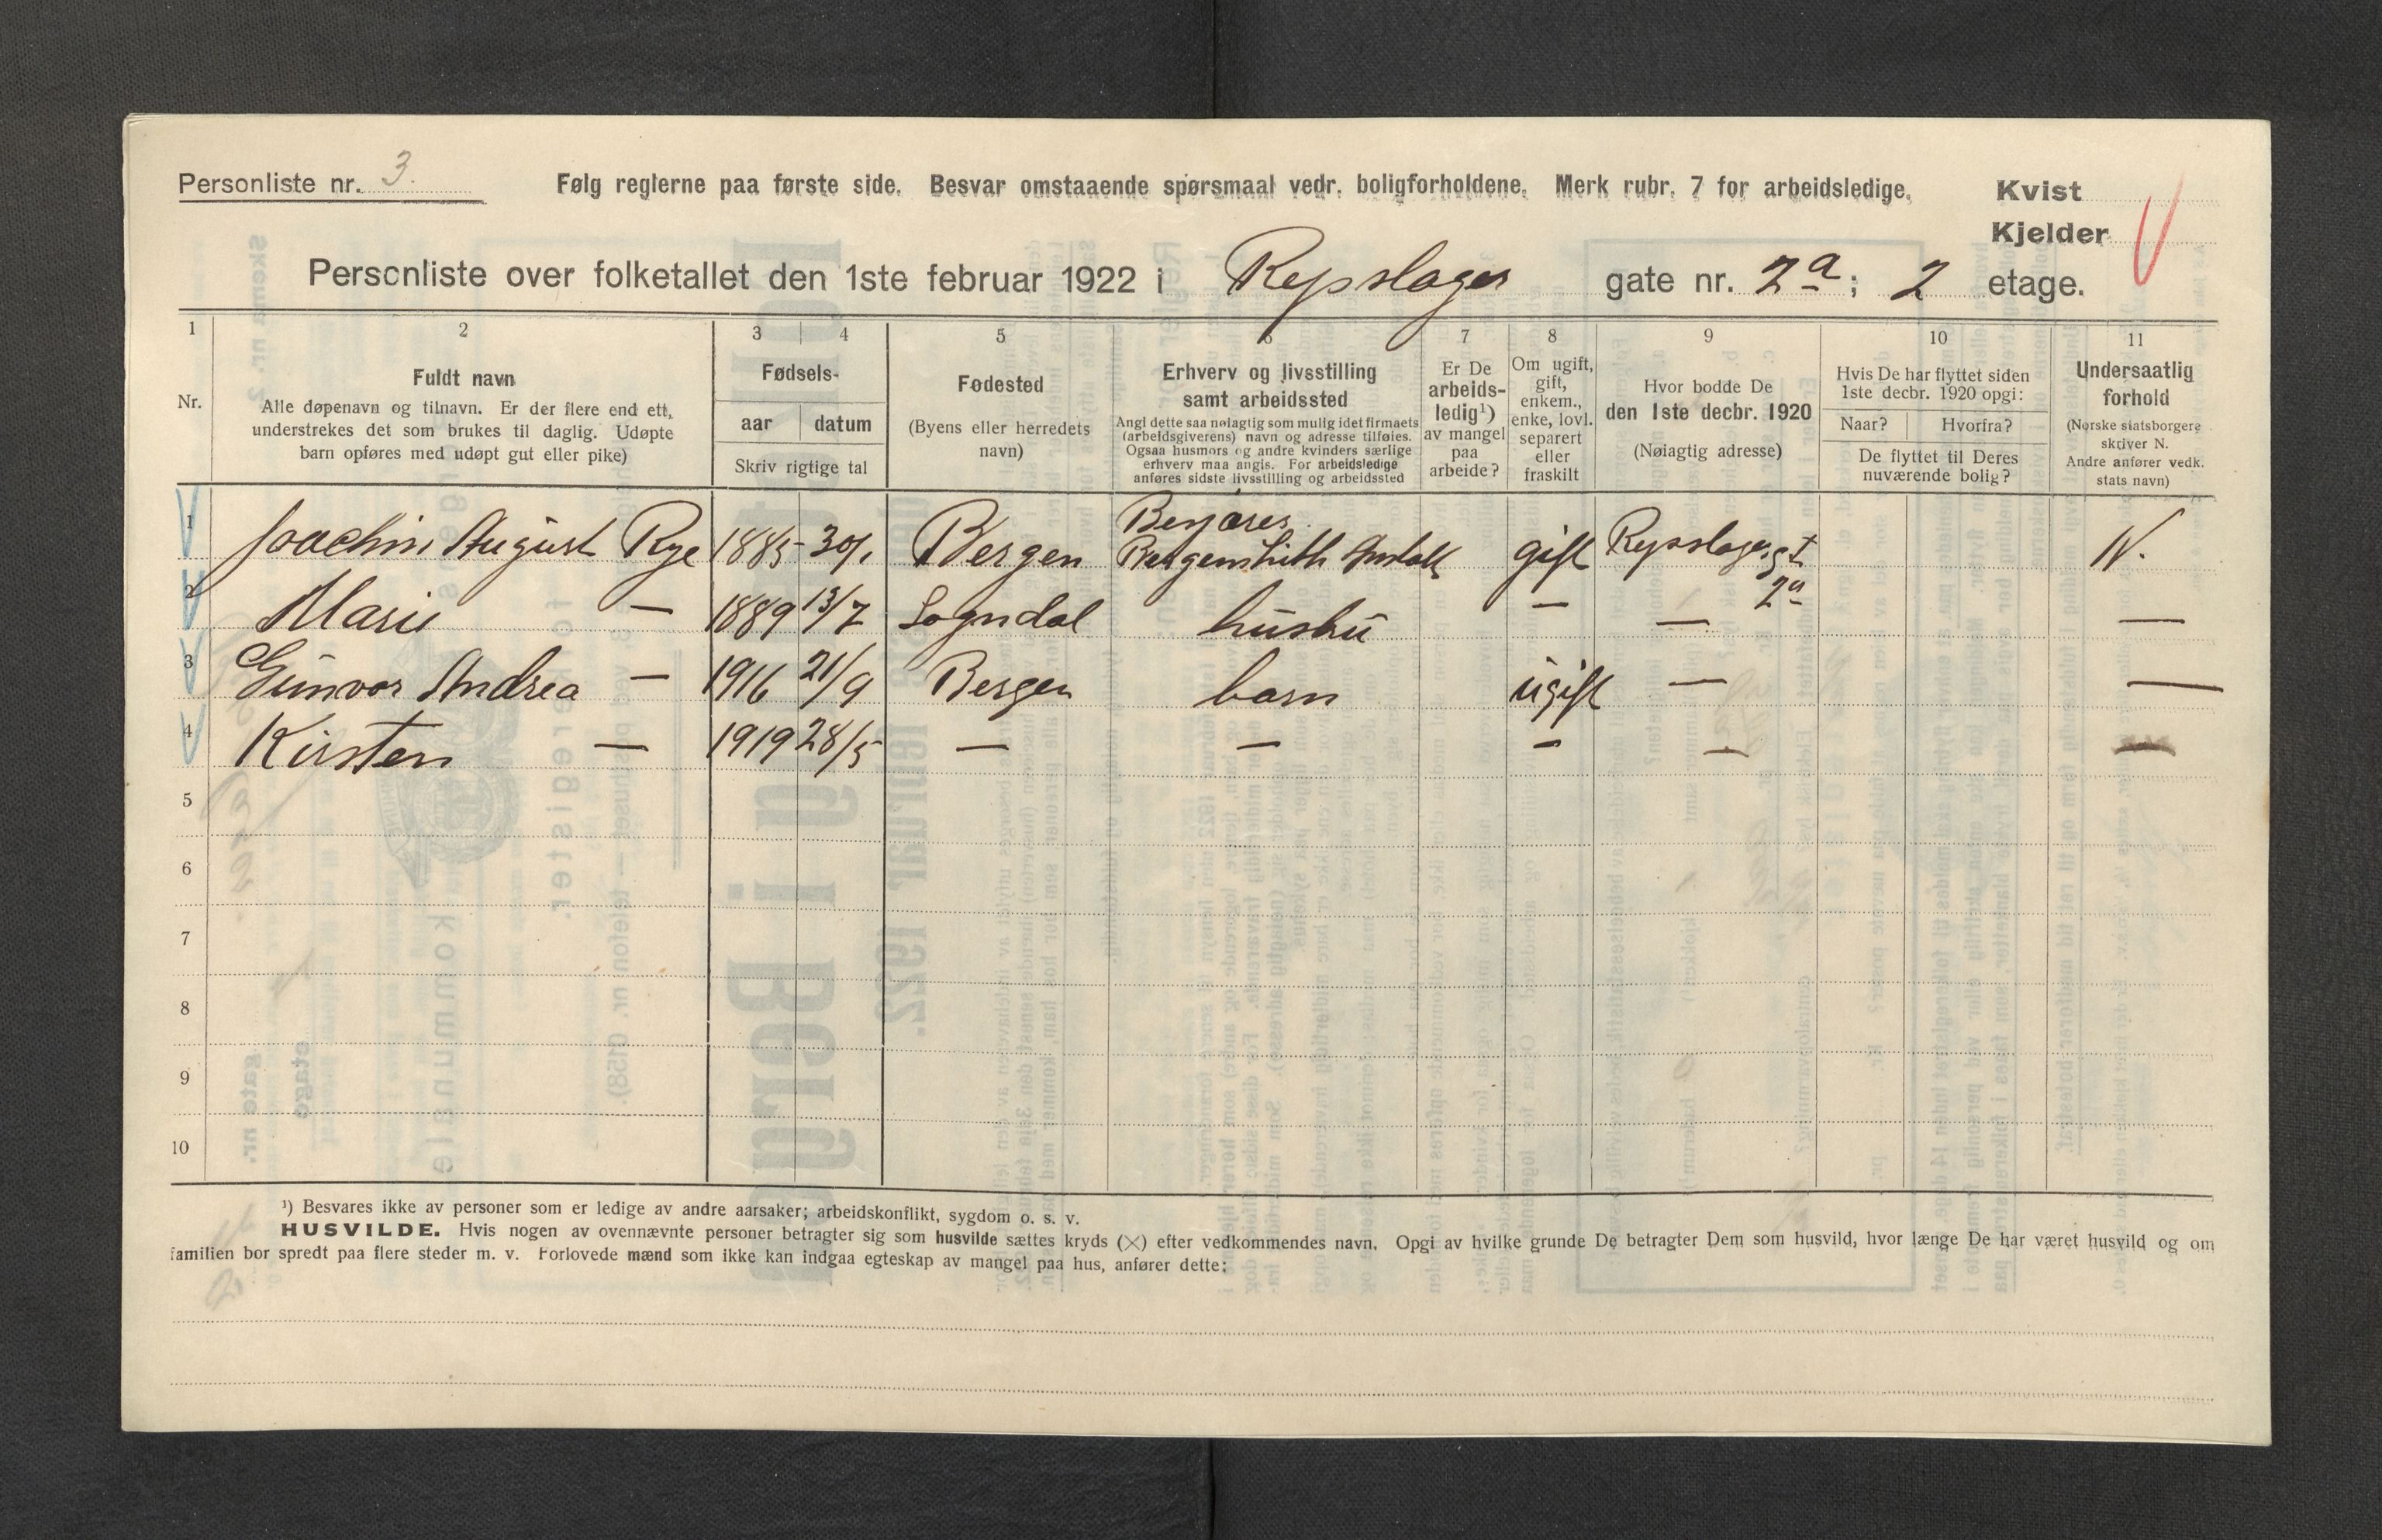 Personliste nr. 3.
Følg reglerne paa første side. Besvar omstaaende spørsmaal vedr. boligforholdene. Merk rubr. 7 for arbeidsledige.
Kvist
Kjelder
Personliste over folketallet den 1ste februar 1922 i Repslager gate nr. 2a; 2 etage.
1 2 3 4 5 6 7 8 9 10 11
Nr.
Fuldt navn
Alle døpenavn og tilnavn. Er der flere end ett,
understrekes det som brukes til daglig. Udøpte
barn opføres med udøpt gut eller pike)
Fødsels-
aar datum
Skriv rigtige tal
Fødested
(Byens eller herredets
navn)
Erhverv og livsstilling
samt arbeidssted
Angi dette saa nøiagtig som mulig idet firmaets
(arbeidsgiverens) navn og adresse tilføies.
Ogsaa husmors og andre kvinders særlige
erhverv maa angis. For arbeidsledige
anføres sidste livsstilling og arbeidssted
Er De
arbeids-
ledig¹)
av mangel
paa
arbeide?
Om ugift,
gift,
enkem.,
enke, lovl.
separert
eller
fraskilt
Hvor bodde De
den 1ste decbr. 1920
(Nøiagtig adresse)
Hvis De har flyttet siden
1ste decbr. 1920 opgi:
Naar? Hvorfra?
De flyttet til Deres
nuværende bolig?
Undersaatlig
forhold
(Norske statsborgere
skriver N.
Andre anfører vedk.
stats navn)
1 Joachim August Rye 1885 30/1 Bergen Bergens lith Anstalt gift Repslagergt 2a N.
2 Marie — 1889 13/7 Sogndal hustru — — —
3 Gunvor Andrea — 1916 21/9 Bergen barn ugift — —
4 Kirsten — 1919 28/5 — — — — —
5
6
7
8
9
10
¹) Besvares ikke av personer som er ledige av andre aarsaker; arbeidskonflikt, sygdom o. s. v.
HUSVILDE. Hvis nogen av ovennævnte personer betragter sig som husvilde sættes kryds (×) efter vedkommendes navn. Opgi av hvilke grunde De betragter Dem som husvild, hvor længe De har været husvild og om
familien bor spredt paa flere steder m. v. Forlovede mænd som ikke kan indgaa egteskap av mangel paa hus, anfører dette: